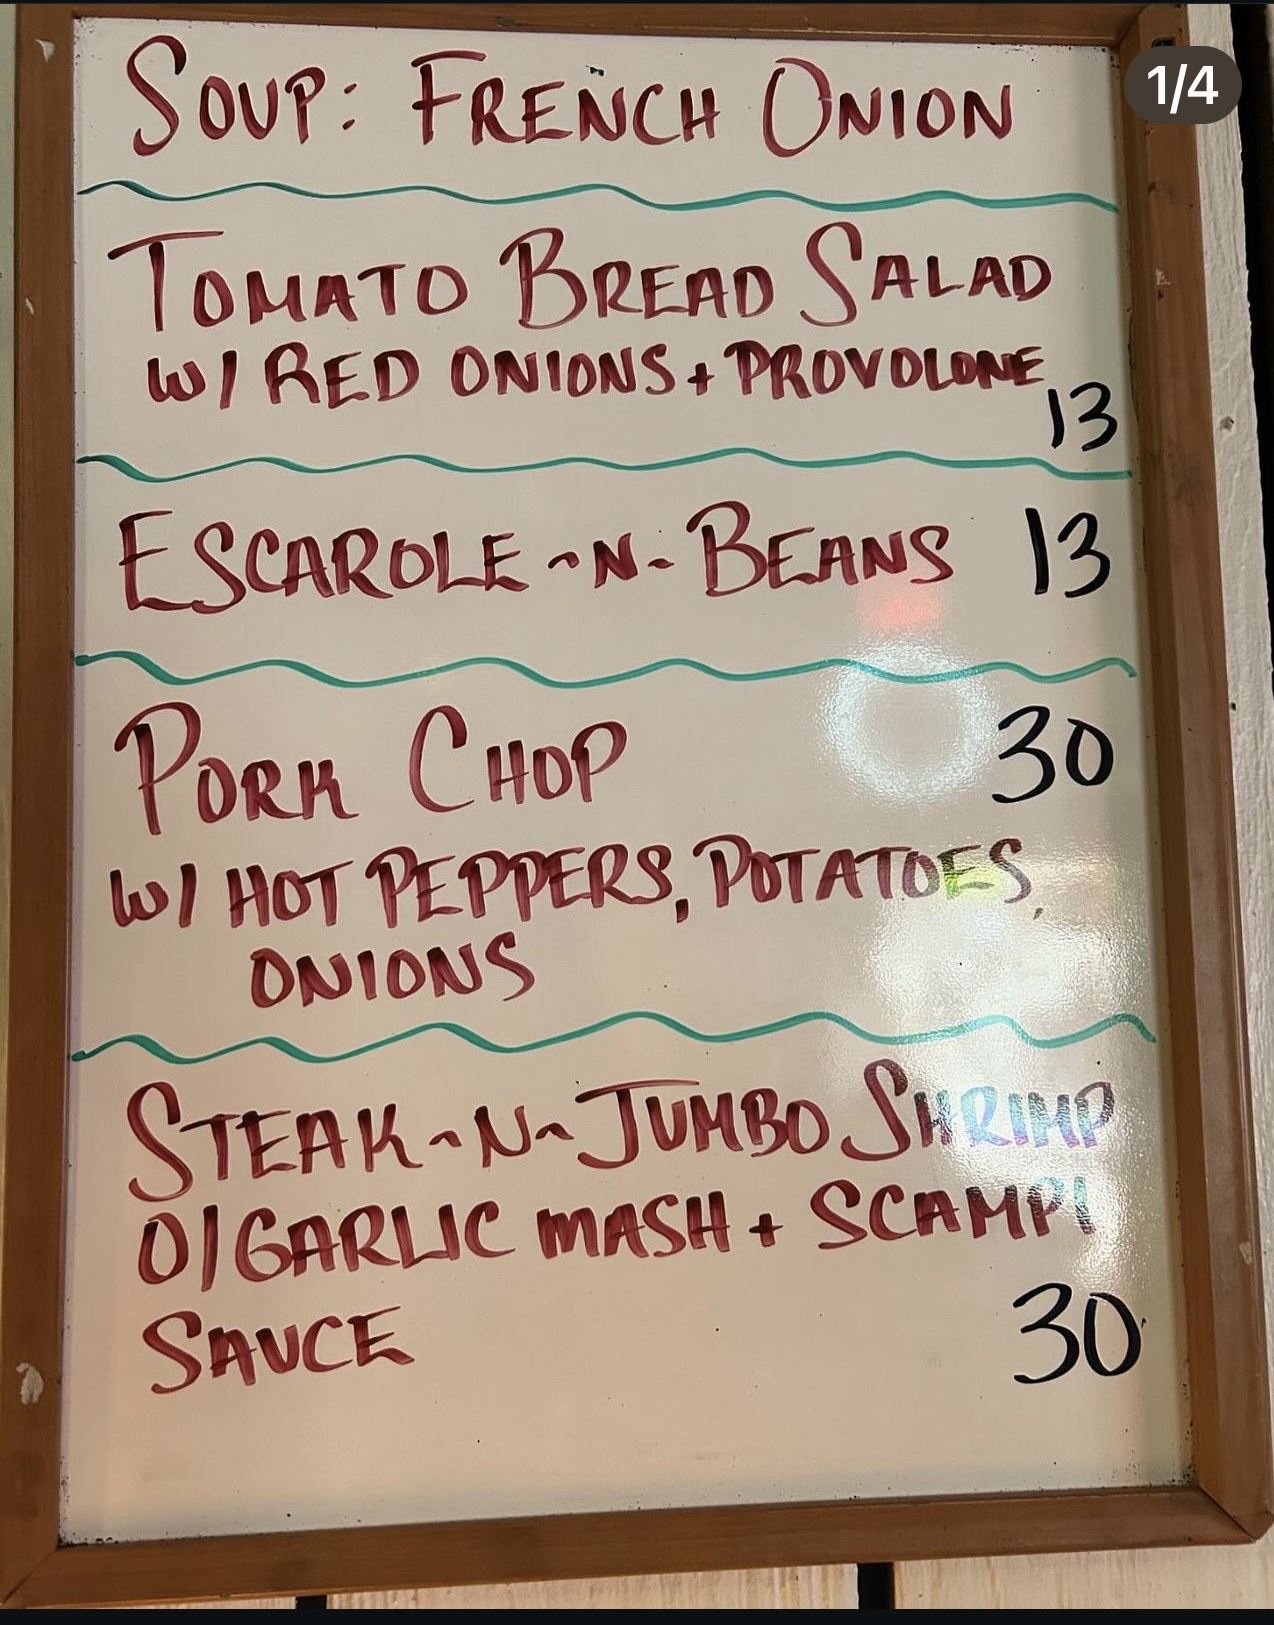 1/4
SOUP: FRENCH ONION
TOMATO BREAD SALAD
W/ RED ONIONS + PROVOLONE
13
ESCAROLE -N- BEANS 13
PORK CHOP 30
W/ HOT PEPPERS, POTATOES,
ONIONS
STEAK -N- JUMBO SHRIMP
O/GARLIC MASH + SCAMPI
SAUCE 30